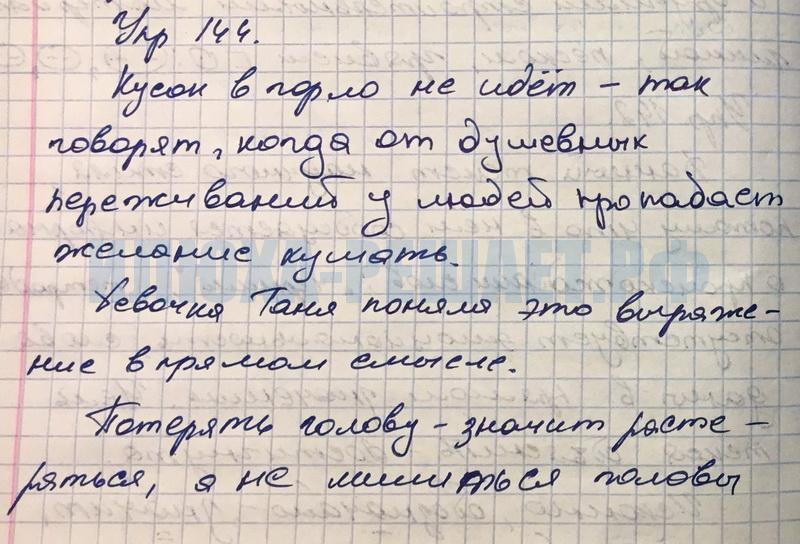 Упр 144.
Кусок в горло не идёт - так
говорят, когда от душевных
переживаний у людей пропадает
желание кушать.
Девочка Таня поняла это выраже-
ние в прямом смысле.
Потерять голову - значит расте-
ряться, а не лишиться головы